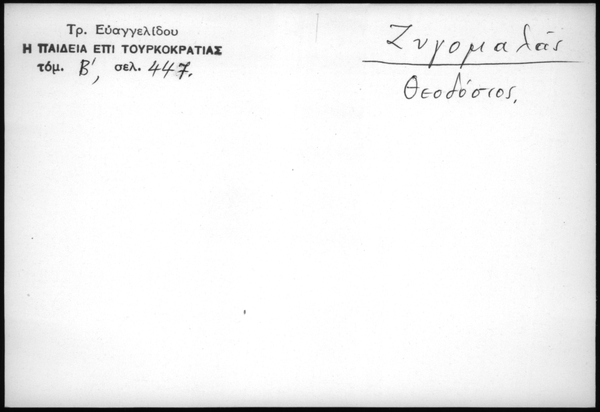 Τρ. Εὐαγγελίδου
Η ΠΑΙΔΕΙΑ ΕΠΙ ΤΟΥΡΚΟΚΡΑΤΙΑΣ
τόμ. Β', σελ. 447.
Ζυγομαλᾶς
Θεοδόσιος.